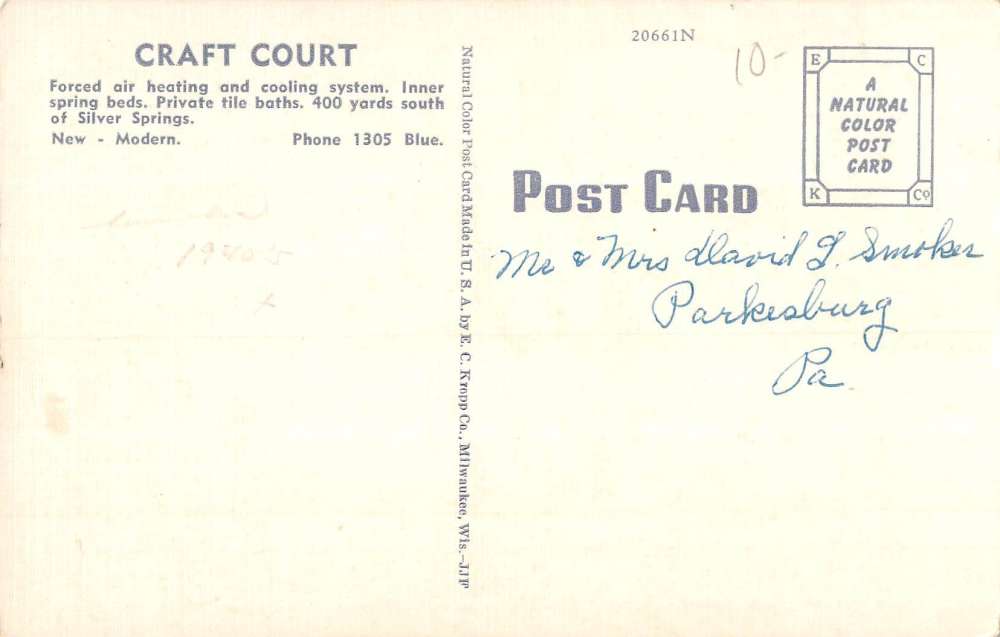 CRAFT COURT
Forced air heating and cooling system. Inner
spring beds. Private tile baths. 400 yards south
of Silver Springs.
New - Modern. Phone 1305 Blue.
1940s
Natural Color Post Card Made in U. S. A. by E. C. Kropp Co., Milwaukee, Wis.—JJP
20661N
10-
E C
A
NATURAL
COLOR
POST
CARD
K Co
POST CARD
Mr & Mrs David L. Smoker
Parkesburg
Pa